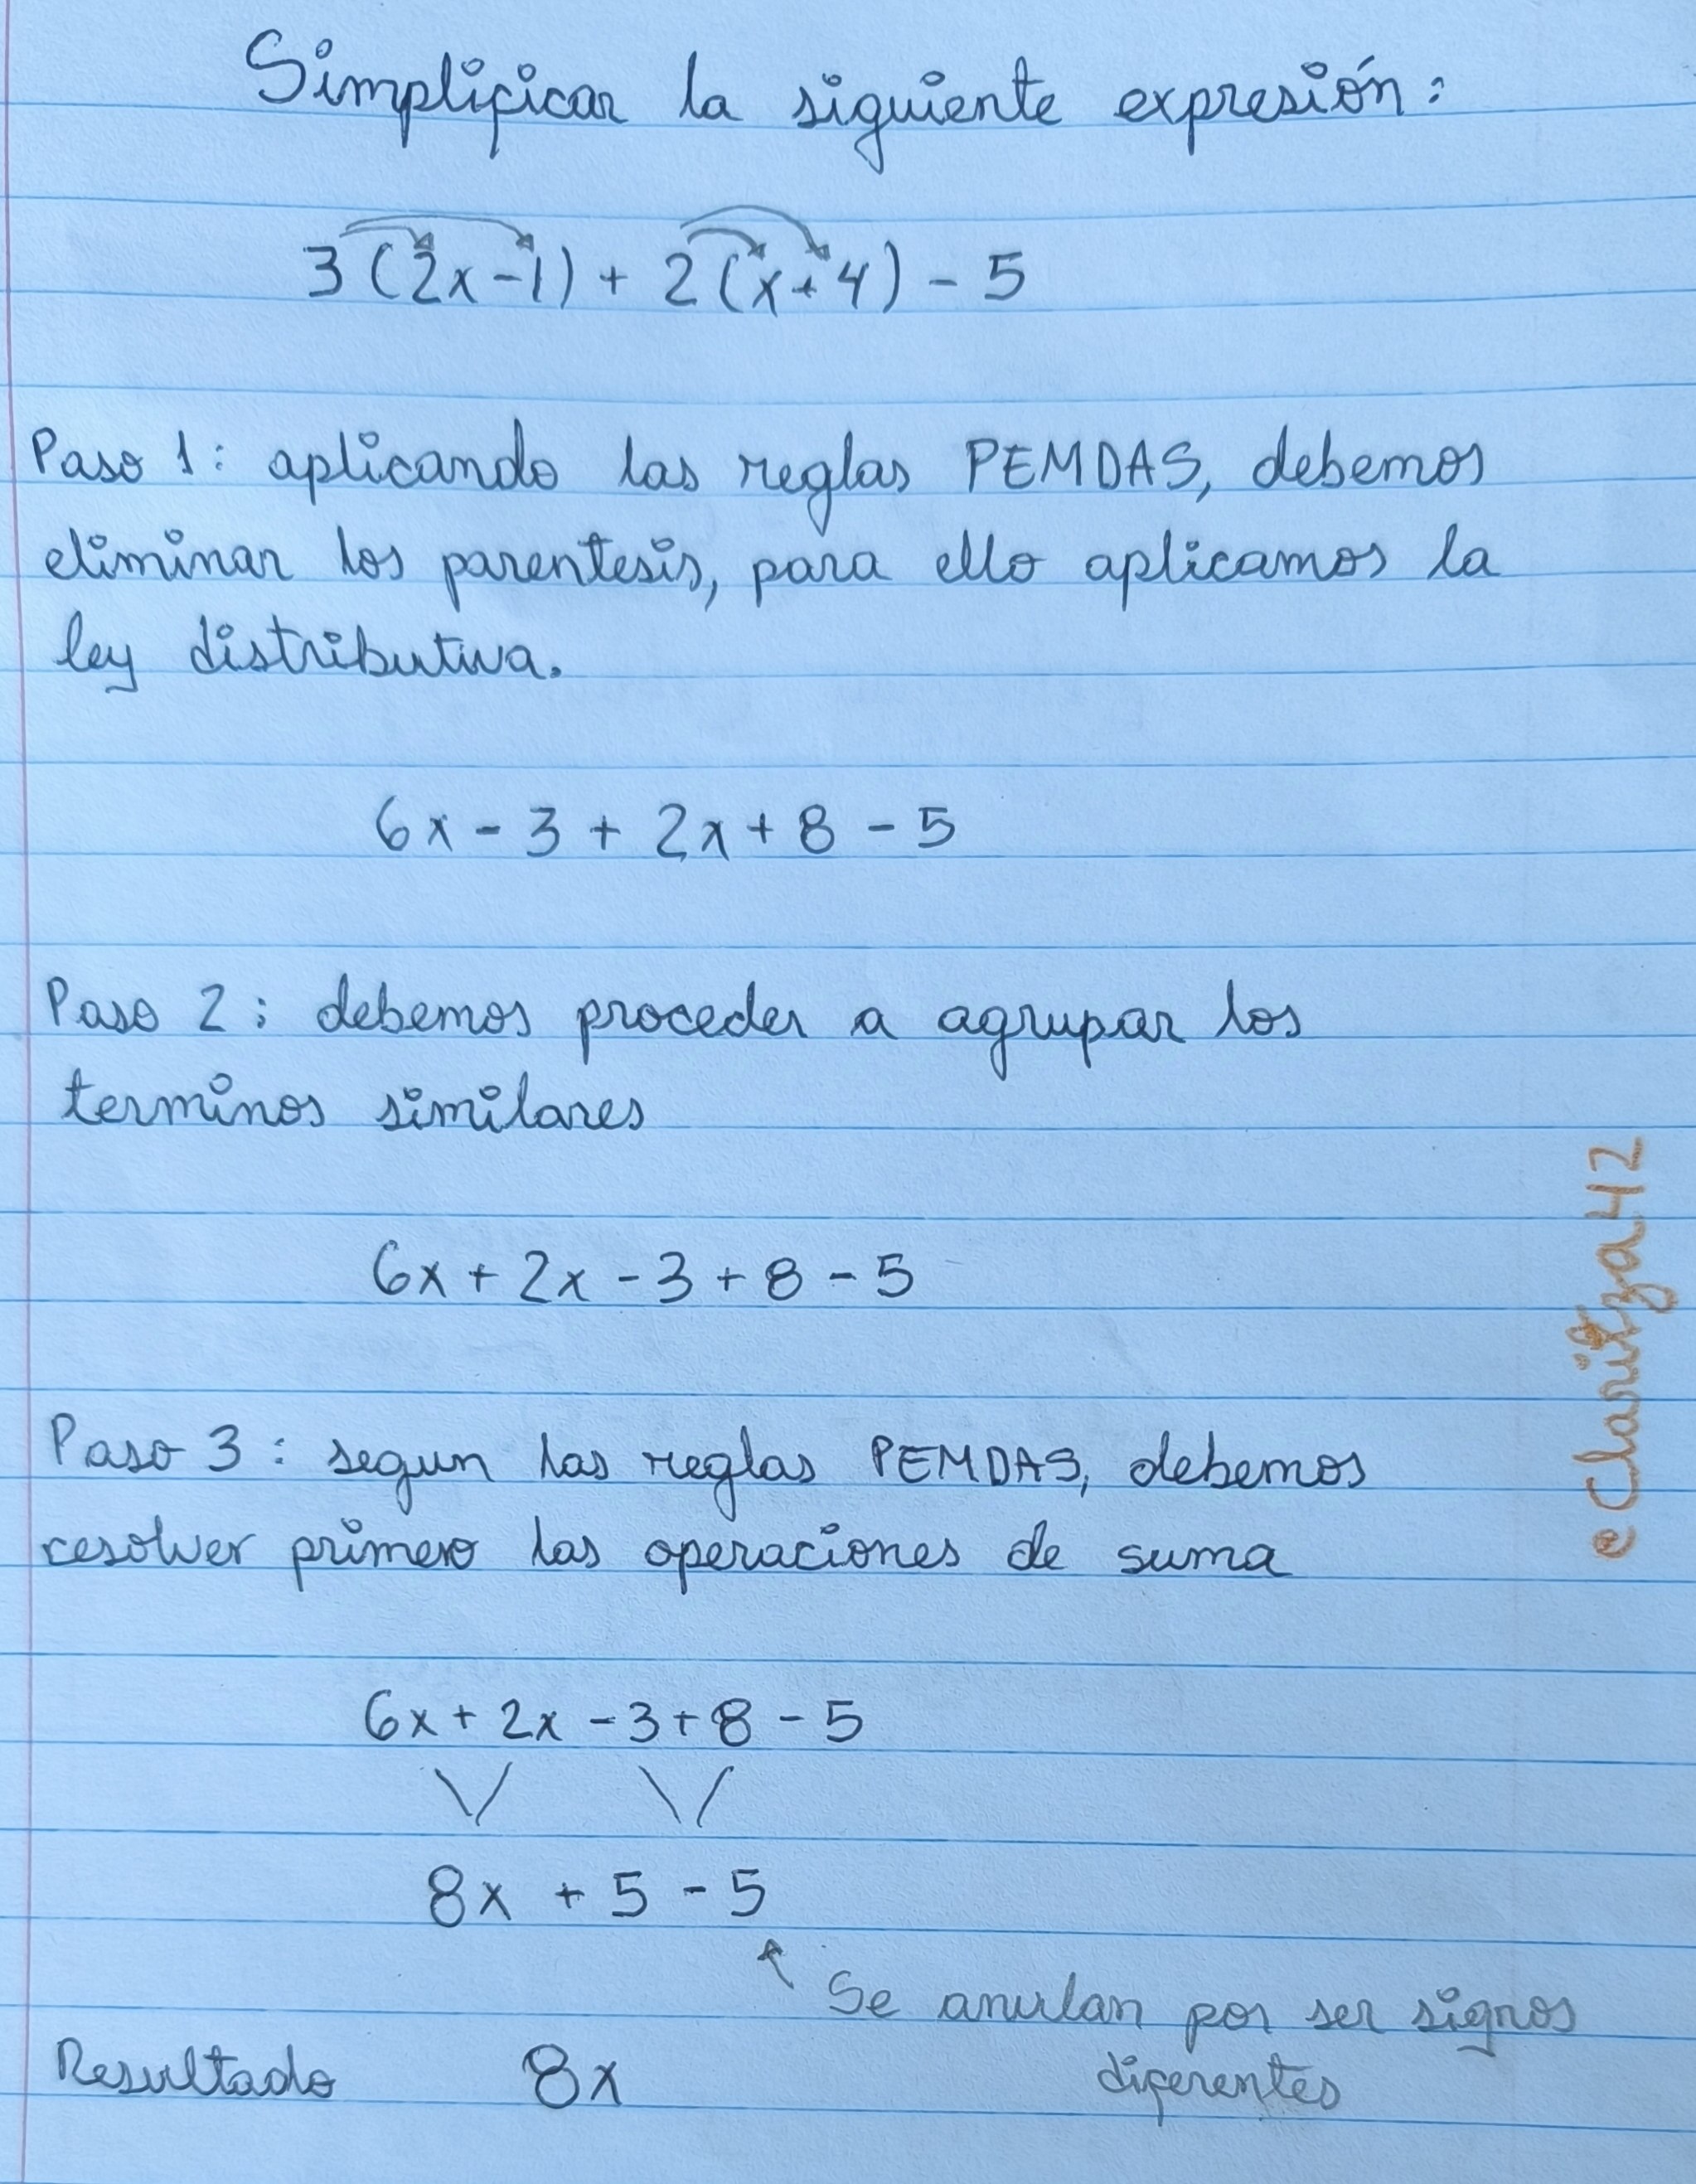 Simplificar la siguiente expresión:
3(2x-1) + 2(x+4) - 5
Paso 1: aplicando las reglas PEMDAS, debemos
eliminar los parentesis, para ello aplicamos la
ley distributiva.
6x - 3 + 2x + 8 - 5
Paso 2: debemos proceder a agrupar los
terminos similares
6x + 2x - 3 + 8 - 5
Paso 3: segun las reglas PEMDAS, debemos
resolver primero las operaciones de suma
6x + 2x - 3 + 8 - 5
8x + 5 - 5
Se anulan por ser signos
diferentes
Resultado 8x
eClaritza42